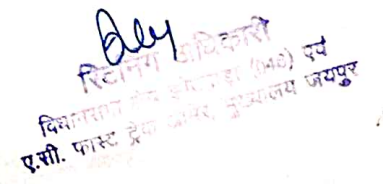 रिटर्निंग अधिकारी
विधानसभा क्षेत्र (046) एवं
ए.सी. फास्ट ट्रेक आमेर, मुख्यालय जयपुर